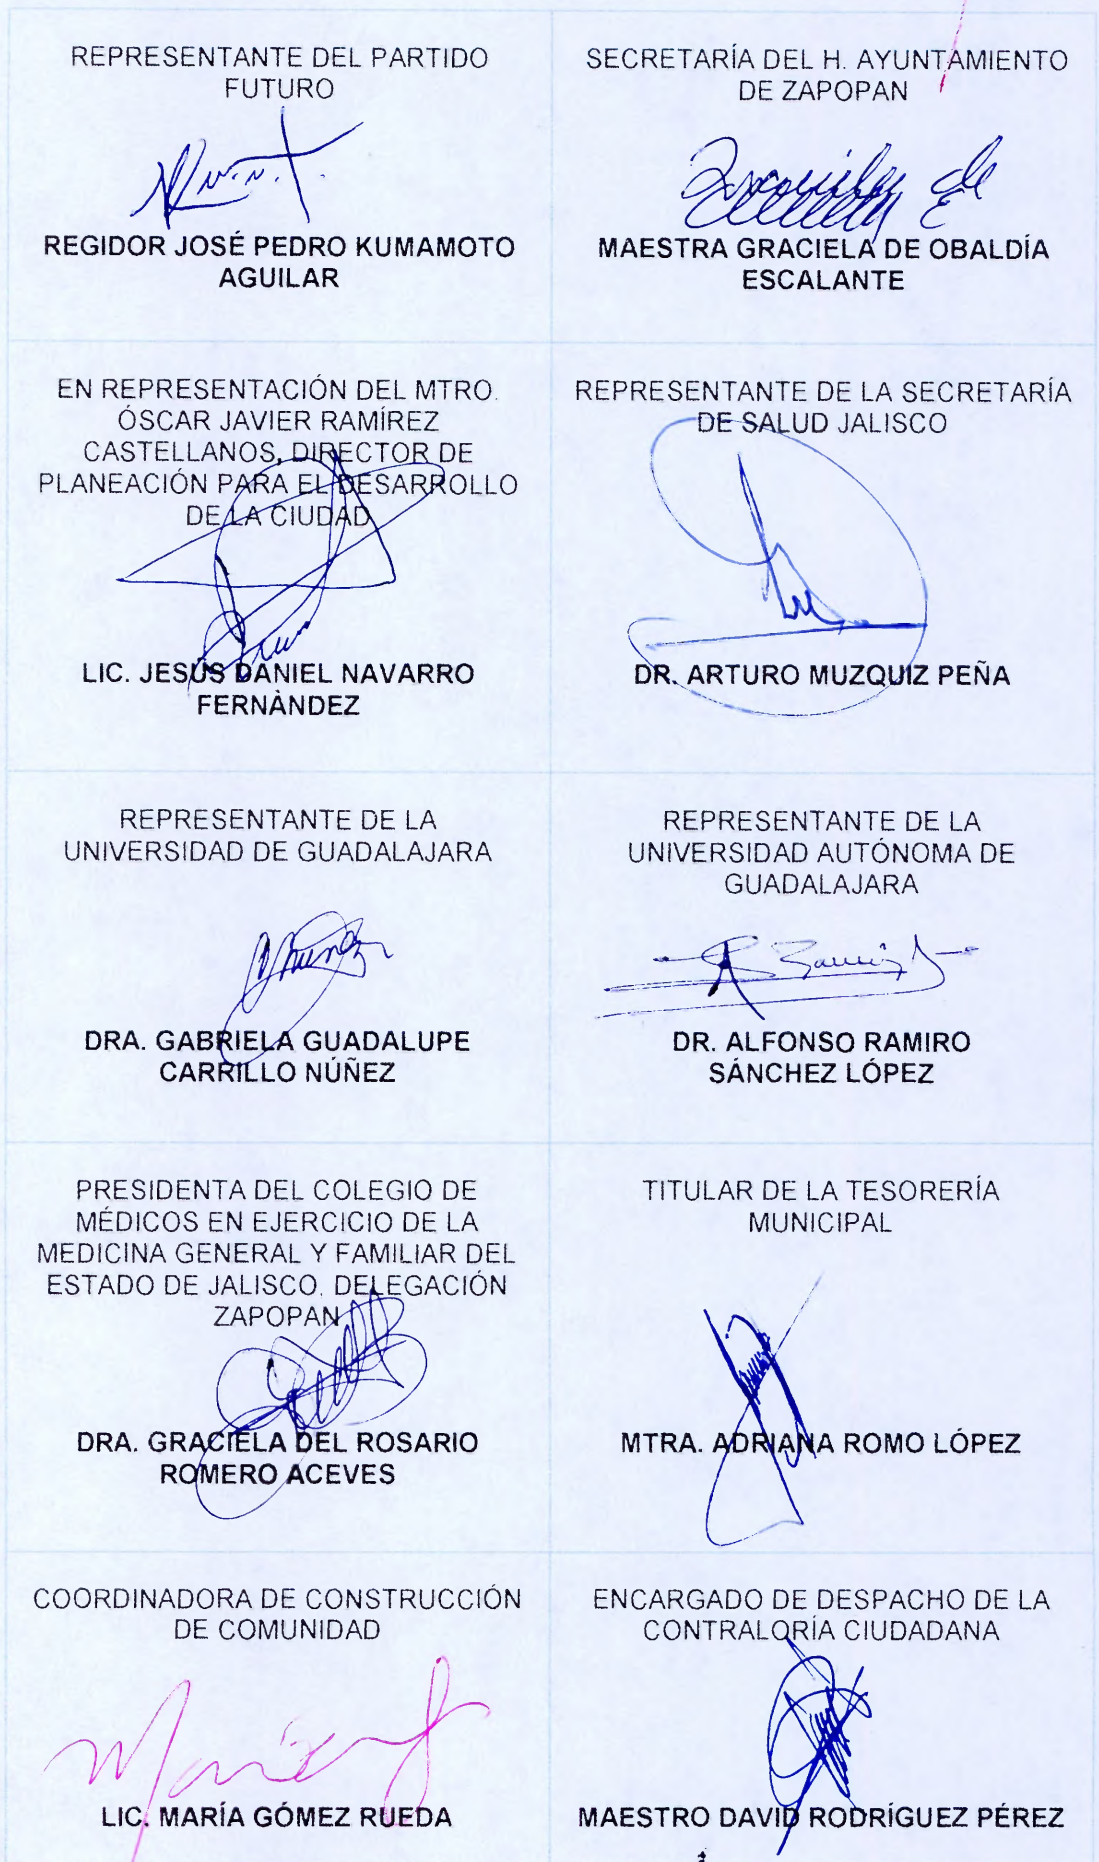 REPRESENTANTE DEL PARTIDO
FUTURO
REGIDOR JOSÉ PEDRO KUMAMOTO
AGUILAR
SECRETARÍA DEL H. AYUNTAMIENTO
DE ZAPOPAN
MAESTRA GRACIELA DE OBALDÍA
ESCALANTE
EN REPRESENTACIÓN DEL MTRO.
ÓSCAR JAVIER RAMÍREZ
CASTELLANOS, DIRECTOR DE
PLANEACIÓN PARA EL DESARROLLO
DE LA CIUDAD
LIC. JESÚS DANIEL NAVARRO
FERNÀNDEZ
REPRESENTANTE DE LA SECRETARÍA
DE SALUD JALISCO
DR. ARTURO MUZQUIZ PEÑA
REPRESENTANTE DE LA
UNIVERSIDAD DE GUADALAJARA
DRA. GABRIELA GUADALUPE
CARRILLO NÚÑEZ
REPRESENTANTE DE LA
UNIVERSIDAD AUTÓNOMA DE
GUADALAJARA
DR. ALFONSO RAMIRO
SÁNCHEZ LÓPEZ
PRESIDENTA DEL COLEGIO DE
MÉDICOS EN EJERCICIO DE LA
MEDICINA GENERAL Y FAMILIAR DEL
ESTADO DE JALISCO. DELEGACIÓN
ZAPOPAN
DRA. GRACIELA DEL ROSARIO
ROMERO ACEVES
TITULAR DE LA TESORERÍA
MUNICIPAL
MTRA. ADRIANA ROMO LÓPEZ
COORDINADORA DE CONSTRUCCIÓN
DE COMUNIDAD
LIC. MARÍA GÓMEZ RUEDA
ENCARGADO DE DESPACHO DE LA
CONTRALORÍA CIUDADANA
MAESTRO DAVID RODRÍGUEZ PÉREZ